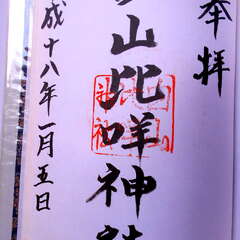 奉拝
山比咩神社
成十八年一月五日